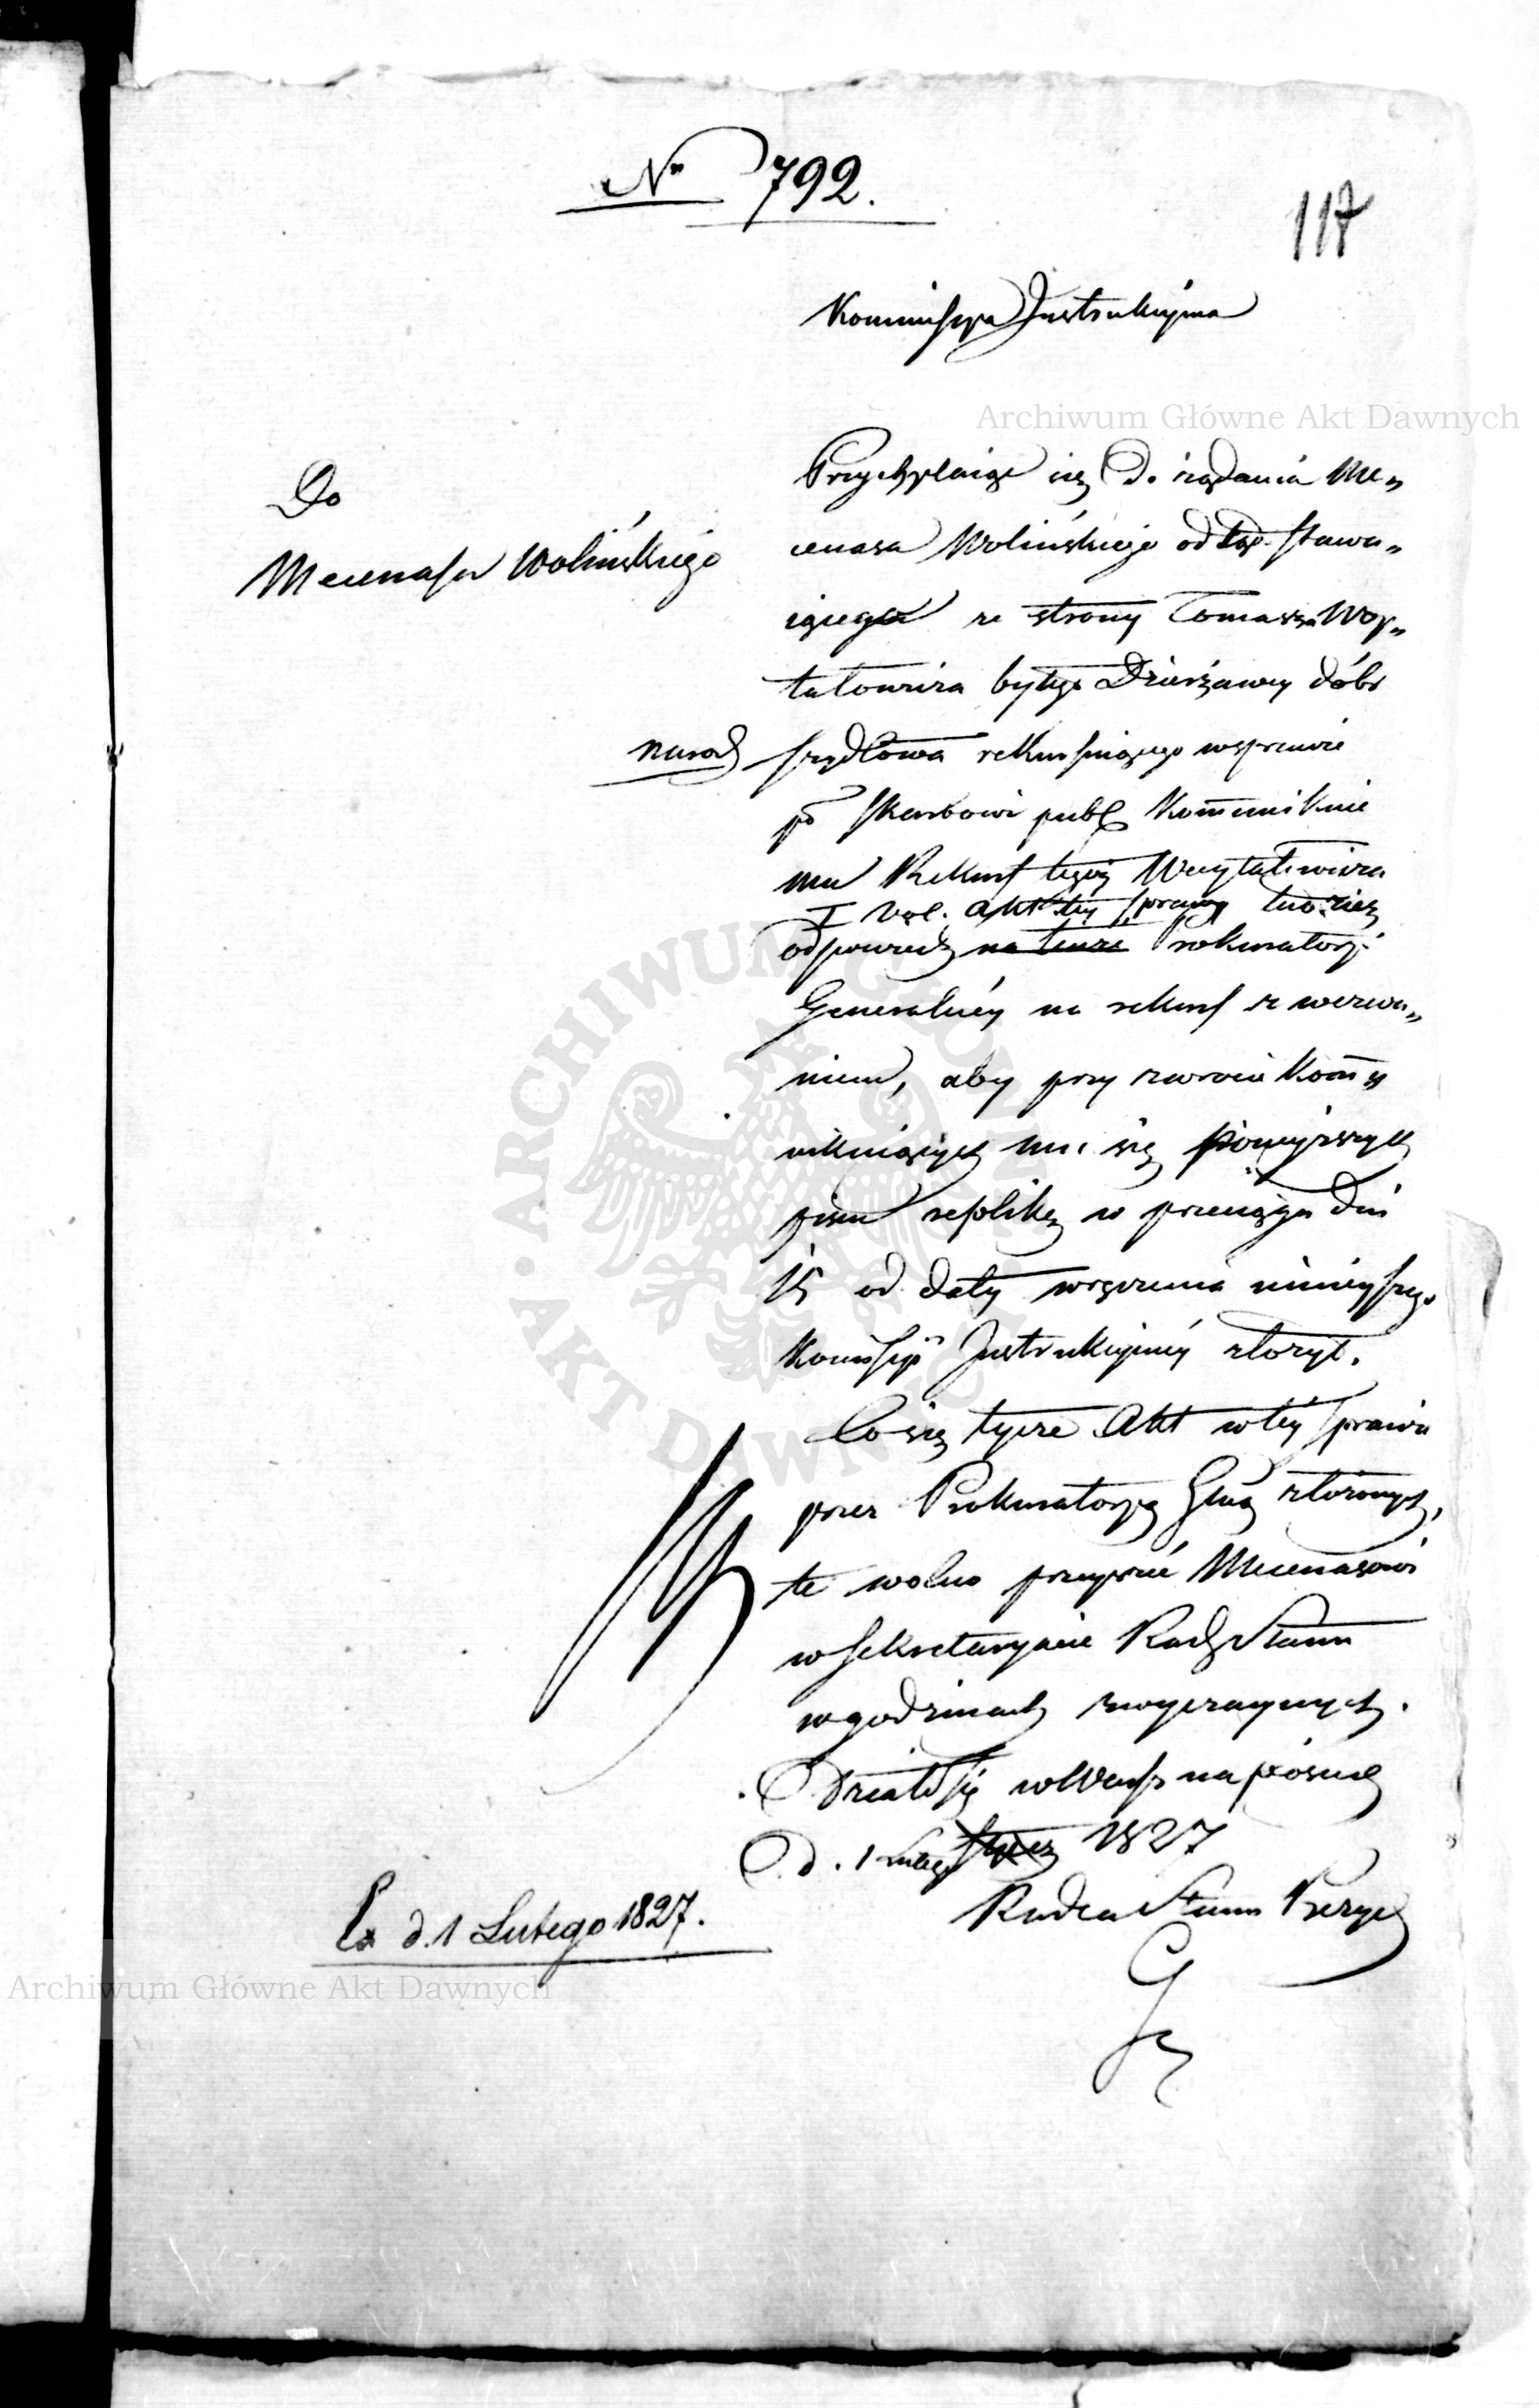 Nro 792.
117
Kommissya Instrukcyina
Do
Mecenasa Wolińskiego
Przychylaiąc się do żądania Me„
cenasa Wolińskiego od stawa„
iącego ze strony Tomasza Woy„
tatowicza byłego Dzierżawcy dóbr
narod Szydłowa rekursuiącego w sprawie
po Skarbowi publ Kommunikuie
mu Rekurs tegoż Woytatowicza
I Vol. Akt tey sprawy tudzież
odpowiedź Prokuratoryi
Generalnéy na rekurs z wezwa„
niem, aby przy zwrocie Kom„
nikuiących mu się powyższych
pism replikę w przeciągu dni
15 od daty wręczenia ninieyszego
Komissyi Instrukcyinéy złożył.
Co się tycze Akt w téy sprawie
przez Prokuratoryą Glną złożonych,
te wolno przeyrzéć Mecenasowi
w Sekretaryacie Rady Stanu
w godzinach zwyczaynych.
Działo się w Warsz na posied
d. 1 Lutego 1827
Radca Stanu Prezyd
Ex d. 1 Lutego 1827.
Archiwum Główne Akt Dawnych
Archiwum Główne Akt Dawnych
ARCHIWUM GŁÓWNE AKT DAWNYCH